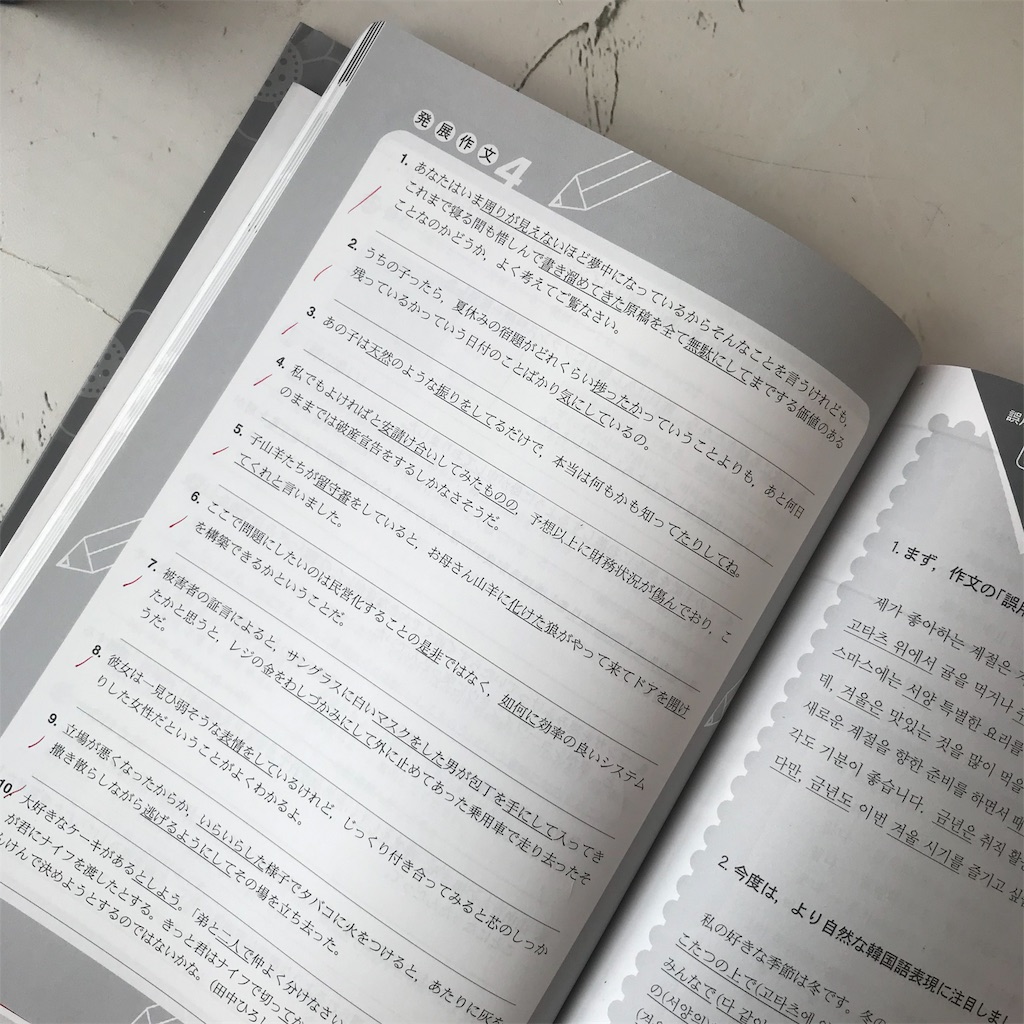 発展作文4
1. あなたはいま周りが見えないほど夢中になっているからそんなことを言うけれども,
これまで寝る間も惜しんで書き溜めてきた原稿を全て無駄にしてまでする価値のある
ことなのかどうか, よく考えてご覧なさい。
2. うちの子ったら, 夏休みの宿題がどれくらい捗ったかっていうことよりも, あと何日
残っているかっていう日付のことばかり気にしているの。
3. あの子は天然のような振りをしてるだけで, 本当は何もかも知ってたりしてね。
4. 私でもよければと安請け合いしてみたものの, 予想以上に財務状況が傷んでおり, こ
のままでは破産宣告をするしかなさそうだ。
5. 子山羊たちが留守番をしていると, お母さん山羊に化けた狼がやって来てドアを開け
てくれと言いました。
6. ここで問題にしたいのは民営化することの是非ではなく, 如何に効率の良いシステム
を構築できるかということだ。
7. 被害者の証言によると, サングラスに白いマスクをした男が包丁を手にして入ってき
たかと思うと, レジの金をわしづかみにして外に止めてあった乗用車で走り去ったそ
うだ。
8. 彼女は一見ひ弱そうな表情をしているけれど, じっくり付き合ってみると芯のしっか
りした女性だということがよくわかるよ。
9. 立場が悪くなったからか, いらいらした様子でタバコに火をつけると, あたりに灰を
撒き散らしながら逃げるようにしてその場を立ち去った。
10. 大好きなケーキがあるとしよう。「弟と二人で仲よく分けなさい
が君にナイフを渡したとする。きっと君はナイフで切って
んけんで決めようとするのではないかな。(田中ひろし
誤
1. まず, 作文の「誤用
제가 좋아하는 계절은
고타츠 위에서 귤을 먹거나
스마스에는 서양 특별한 요리를
데, 겨울은 맛있는 것을 많이 먹을
새로운 계절을 향한 준비를 하면서 때
각도 기분이 좋습니다. 금년은 취직 활
다만, 금년도 이번 겨울 시기를 즐기고 싶
2. 今度は, より自然な韓国語表現に注目しまし
私の好きな季節は冬です。冬の
こたつの上で(고타츠에
みんなで(다 같이)
の(서양의)